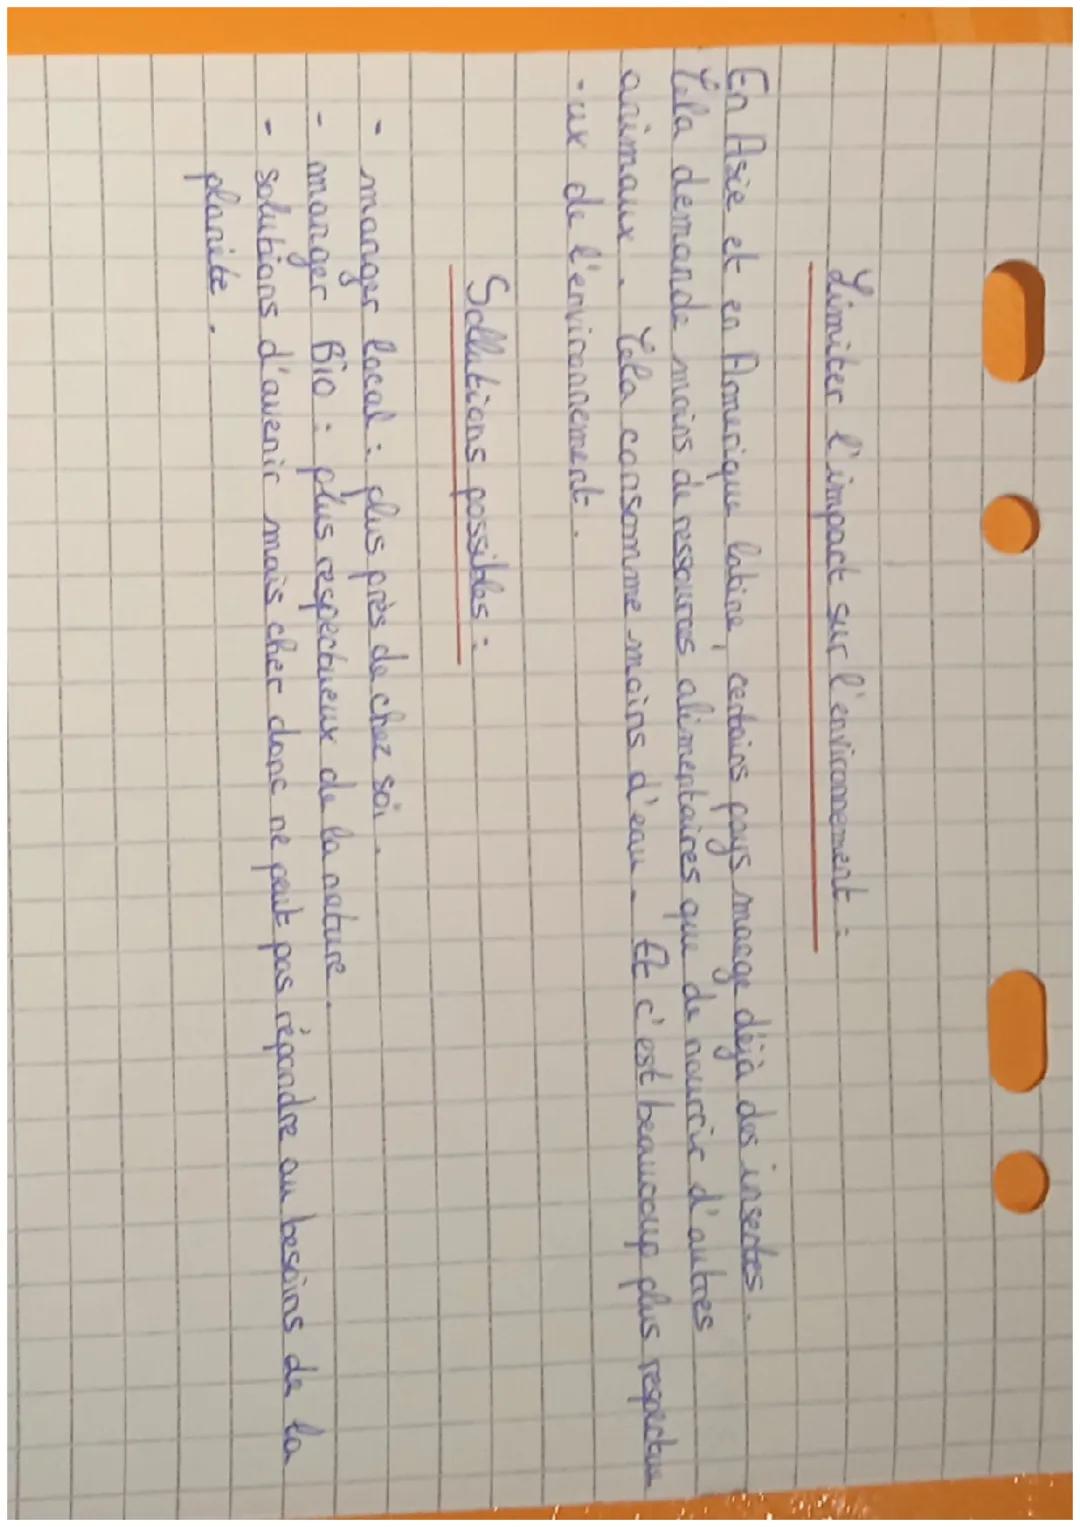 Limiter l'impact sur l'environnement :
En Asie et en Amerique latine, certains pays mange déjà des insectes.
Cela demande moins de ressources alimentaires que de nourrir d'autres
animaux. Cela consomme moins d'eau. Et c'est beaucoup plus respectue
-ux de l'environnement.
Sollutions possibles :
- manger local : plus près de chez soi.
- manger Bio : plus respectueux de la nature.
- solutions d'avenir mais cher donc ne peut pas répondre au besoins de la
planète.